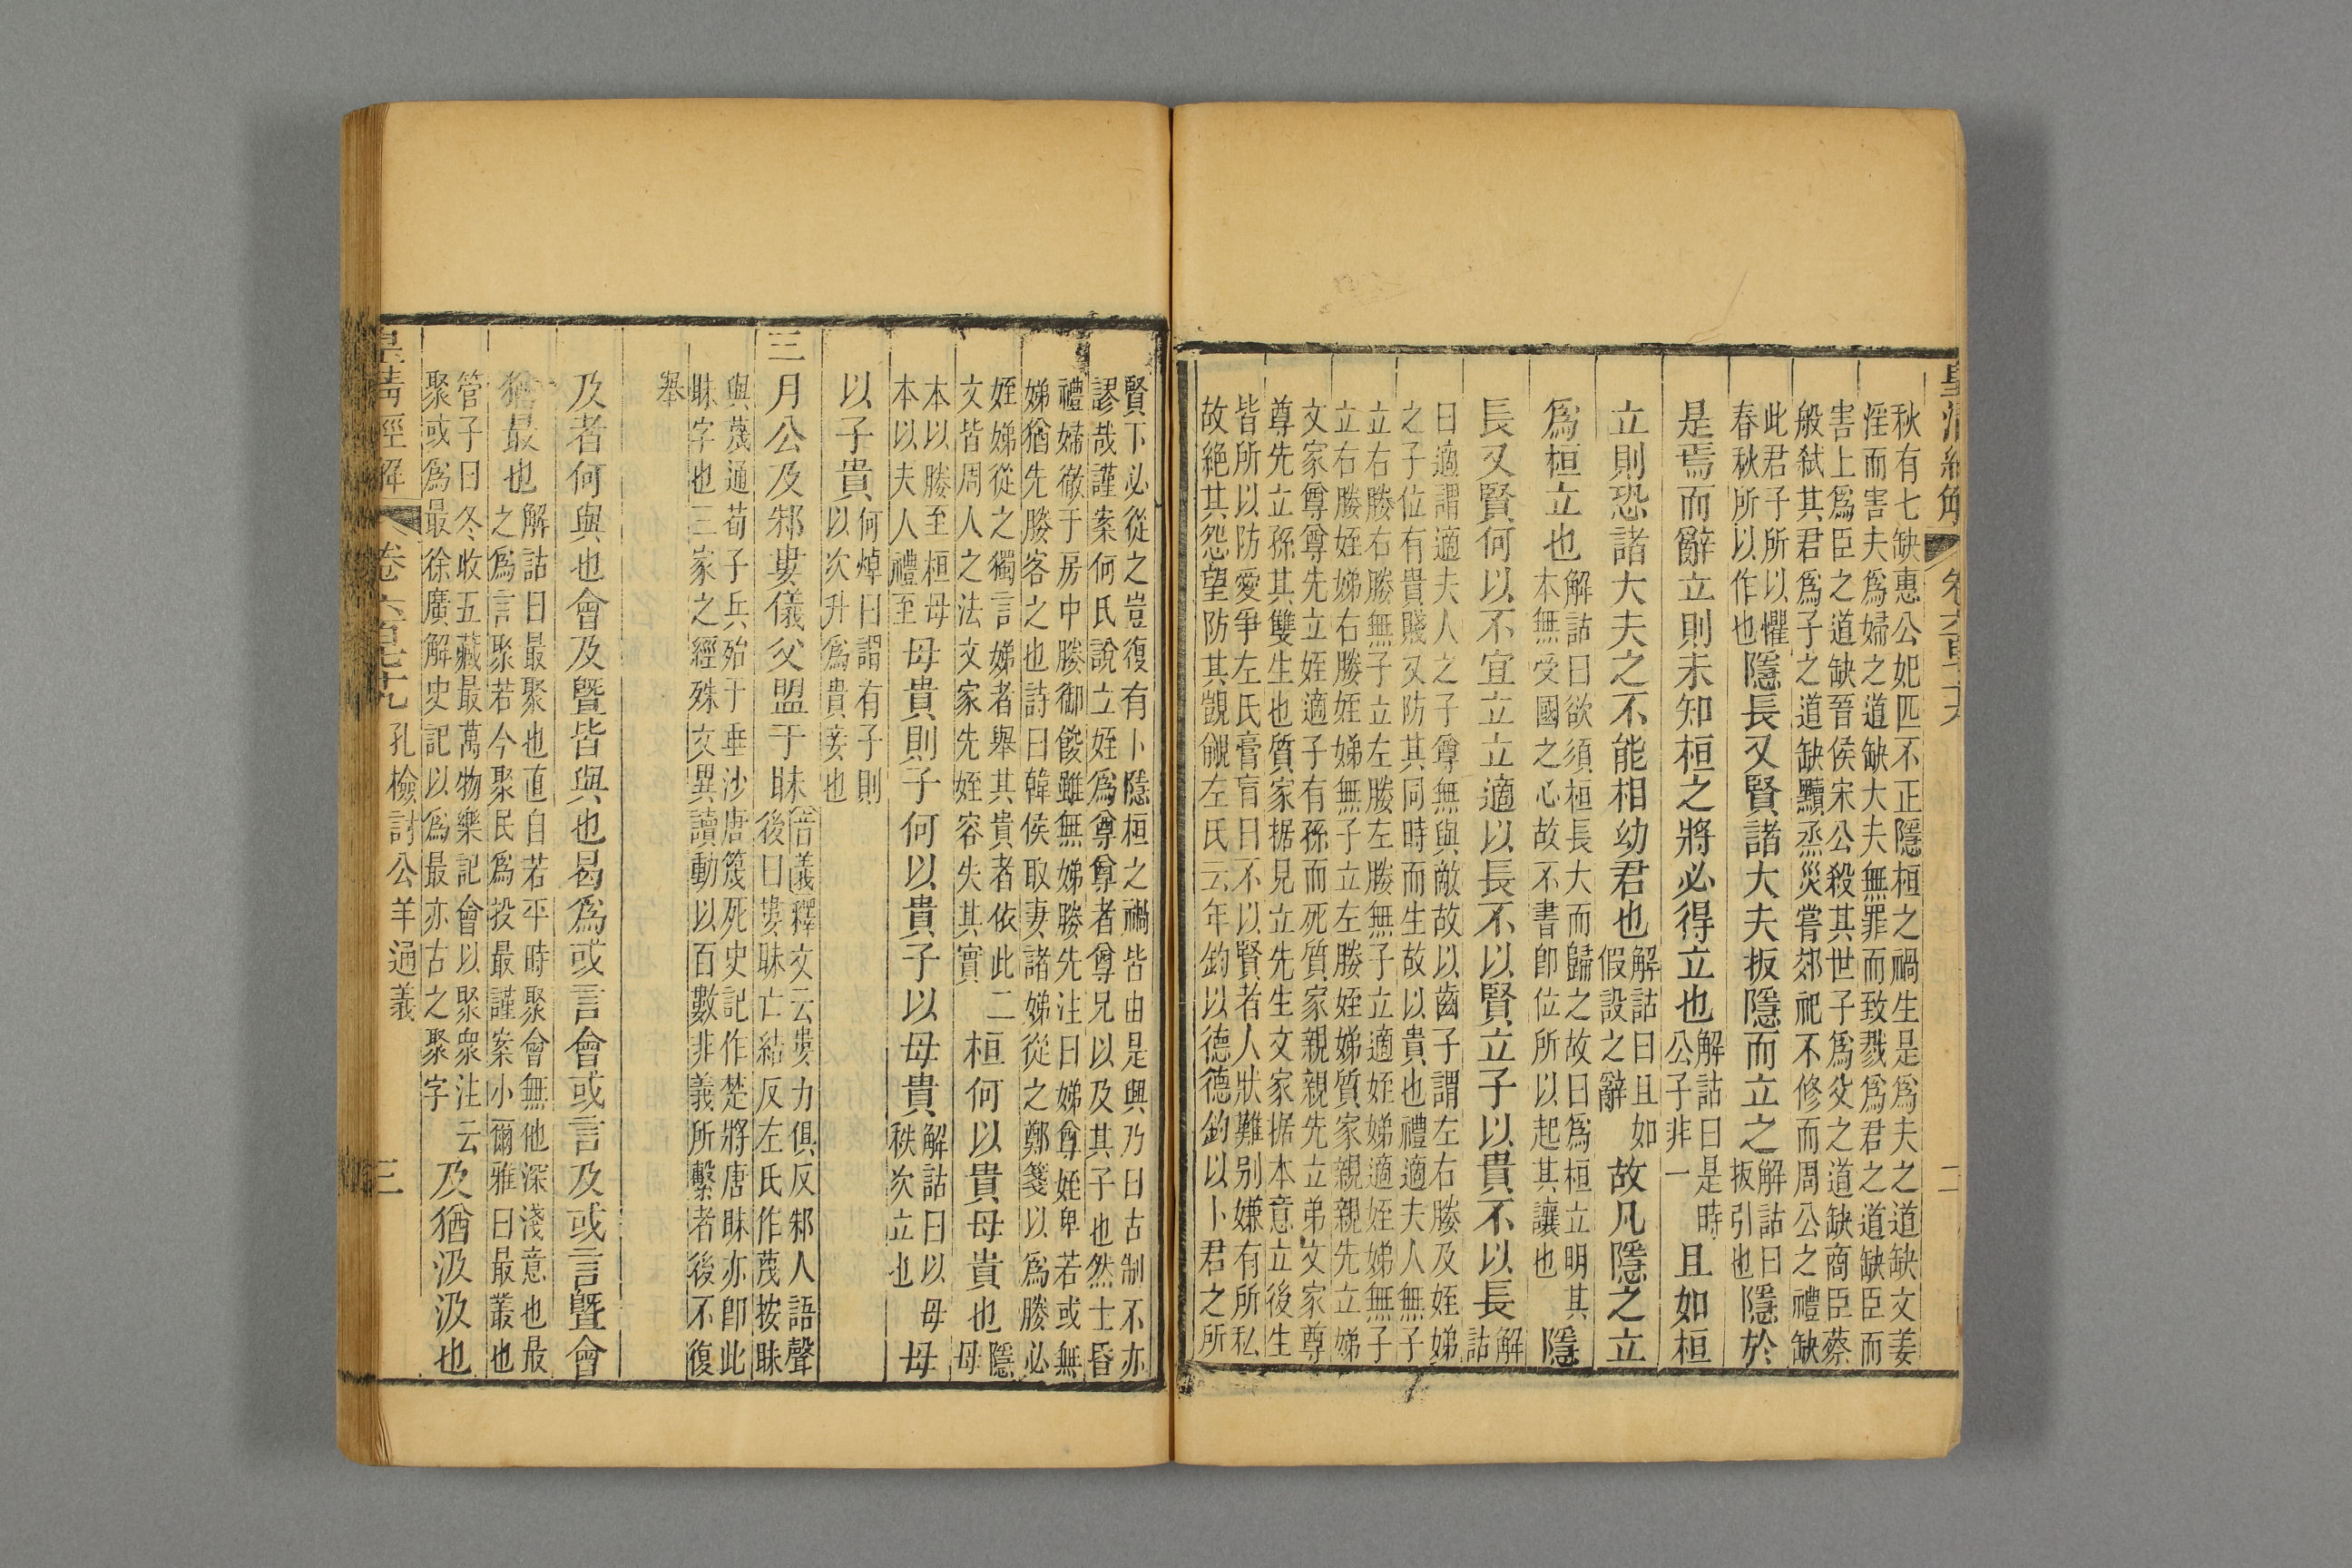 皇清經解 卷六百七十九 二
秋有七缺惠公妃匹不正隱桓之禍生是爲夫之道缺文姜
淫而害夫爲婦之道缺大夫無罪而致戮爲君之道缺臣而
害上爲臣之道缺晉侯宋公殺其世子爲父之道缺商臣蔡
般弑其君爲子之道缺䵝烝災嘗郊祀不修而周公之禮缺
此君子所以懼春秋所以作也隱長又賢諸大夫扳隱而立之解詁曰扳引也隱於
是焉而辭立則未知桓之將必得立也解詁曰是時公子非一且如桓
立則恐諸大夫之不能相幼君也解詁曰且如假設之辭故凡隱之立
爲桓立也解詁曰欲須桓長大而歸之故曰爲桓立明其本無受國之心故不書卽位所以起其讓也隱
長又賢何以不宜立立適以長不以賢立子以貴不以長解詁
曰適謂適夫人之子尊無與敵故以齒子謂左右媵及姪娣
之子位有貴賤又防其同時而生故以貴也禮適夫人無子
立右媵右媵無子立左媵左媵無子立適姪娣適姪娣無子
立右媵姪娣右媵姪娣無子立左媵姪娣質家親親先立娣
文家尊尊先立姪適子有孫而死質家親親先立弟文家尊
尊先立孫其雙生也質家据見立先生文家据本意立後生
皆所以防愛爭左氏膏肓曰不以賢者人狀難別嫌有所私
故絶其怨望防其覬覦左氏云年鈞以德德鈞以卜君之所
賢下必從之豈復有卜隱桓之禍皆由是興乃曰古制不亦
謬哉謹案何氏說立姪爲尊尊者尊兄以及其子也然士昏
禮婦徹于房中媵御餕雖無娣媵先注曰娣尊姪卑若或無
娣猶先媵客之也詩曰韓侯取妻諸娣從之鄭箋以爲媵必
姪娣從之獨言娣者舉其貴者依此二文皆周人之法文家先姪容失其實桓何以貴母貴也隱母
本以媵至桓母本以夫人禮至母貴則子何以貴子以母貴解詁曰以母秩次立也母
以子貴何焯曰謂有子則以次升爲貴妾也
三月公及邾婁儀父盟于眛音義釋文云婁力俱反邾人語聲後曰婁眛亡結反左氏作蔑按眛
與蔑通荀子兵殆于垂沙唐篾死史記作楚將唐眛亦卽此
眛字也三家之經殊文異讀動以百數非義所繫者後不復
舉
及者何與也會及曁皆與也曷爲或言會或言及或言曁會
猶最也解詁曰最聚也直自若平時聚會無他深淺意也最之爲言聚若今聚民爲投最謹案小爾雅曰最叢也
管子曰冬收五藏最萬物樂記會以聚衆注云聚或爲最徐廣解史記以爲最亦古之聚字及猶汲汲也
皇清經解 卷六百七十九 孔檢討公羊通義 三